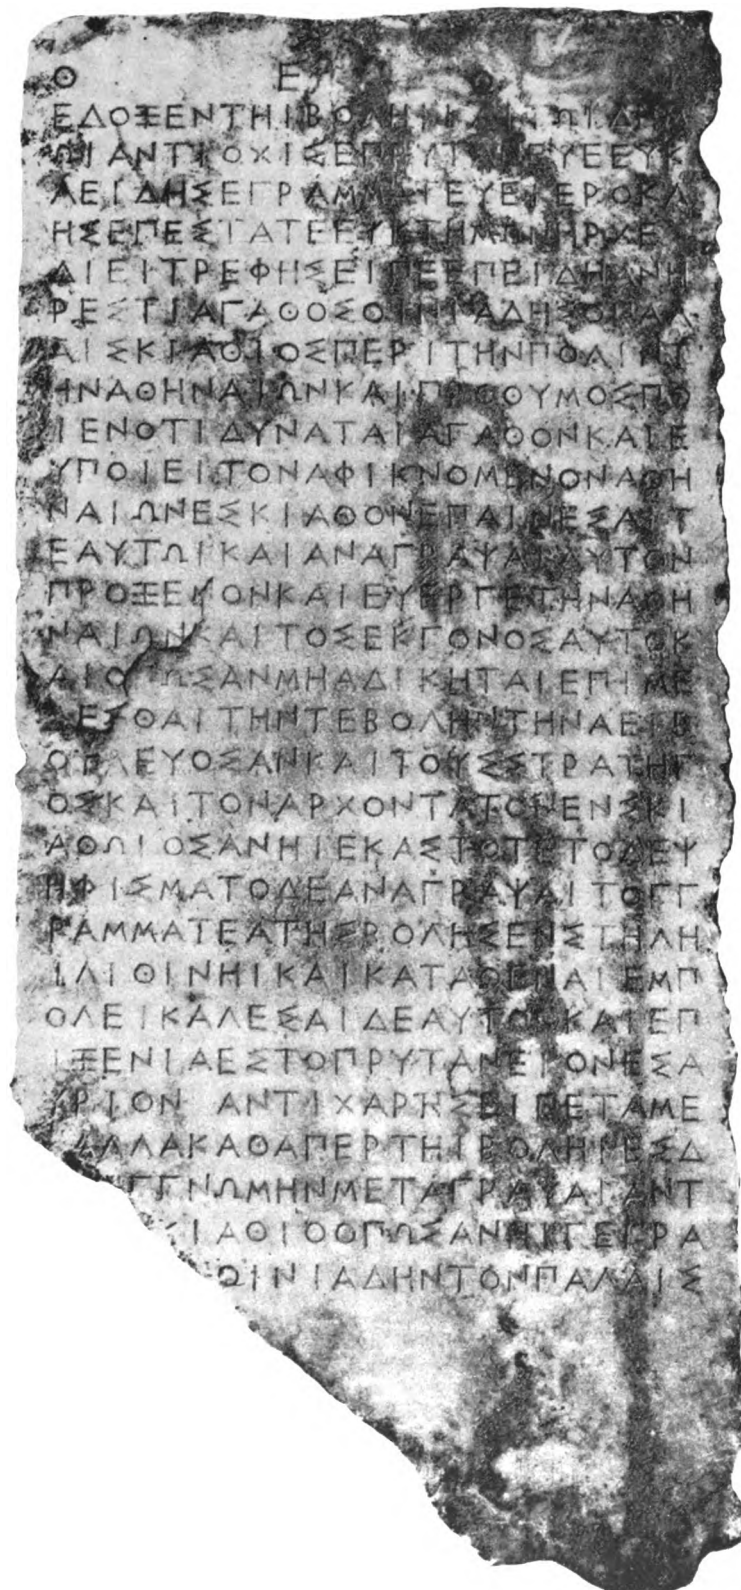 Θ Ε Ο
ΕΔΟΞΕΝΤΗΙΒΟΛΗΙΚΑΙΤΩΙΔΗΜ
ΩΙΑΝΤΙΟΧΙΣΕΠΡΥΤΑΝΕΥΕΕΥΚ
ΛΕΙΔΗΣΕΓΡΑΜΜΑΤΕΥΕΙΕΡΟΚΛ
ΗΣΕΠΕΣΤΑΤΕΕΥΚΤΗΜΩΝΗΡΧΕ
ΔΙΕΙΤΡΕΦΗΣΕΙΠΕΕΠΕΙΔΗΑΝΗ
ΡΕΣΤΙΑΓΑΘΟΣΟΙΝΙΑΔΗΣΟΠΑΛ
ΑΙΣΚΙΑΘΙΟΣΠΕΡΙΤΗΝΠΟΛΙΝΤ
ΗΝΑΘΗΝΑΙΩΝΚΑΙΠΡΟΘΥΜΟΣΠΟ
ΙΕΝΟΤΙΔΥΝΑΤΑΙΑΓΑΘΟΝΚΑΙΕ
ΥΠΟΙΕΙΤΟΝΑΦΙΚΝΟΜΕΝΟΝΑΘΗ
ΝΑΙΩΝΕΣΚΙΑΘΟΝΕΠΑΙΝΕΣΑΙΤ
ΕΑΥΤΩΙΚΑΙΑΝΑΓΡΑΨΑΙΑΥΤΟΝ
ΠΡΟΞΕΝΟΝΚΑΙΕΥΕΡΓΕΤΗΝΑΘΗ
ΝΑΙΩΝΚΑΙΤΟΣΕΚΓΟΝΟΣΑΥΤΟΚ
ΑΙΟΠΩΣΑΝΜΗΑΔΙΚΗΤΑΙΕΠΙΜΕ
ΛΕΣΘΑΙΤΗΝΤΕΒΟΛΗΝΤΗΝΑΕΙΒ
ΟΛΕΥΟΣΑΝΚΑΙΤΟΥΣΣΤΡΑΤΗΓ
ΟΣΚΑΙΤΟΝΑΡΧΟΝΤΑΤΟΝΕΝΣΚΙ
ΑΘΩΙΟΣΑΝΗΙΕΚΑΣΤΟΤΕΤΟΔΕΨ
ΗΦΙΣΜΑΤΟΔΕΑΝΑΓΡΑΨΑΙΤΟΓΓ
ΡΑΜΜΑΤΕΑΤΗΣΒΟΛΗΣΕΝΣΤΗΛΗ
ΙΛΙΘΙΝΗΙΚΑΙΚΑΤΑΘΕΝΑΙΕΜΠ
ΟΛΕΙΚΑΛΕΣΑΙΔΕΑΥΤΟΝΚΑΙΕΠ
ΙΞΕΝΙΑΕΣΤΟΠΡΥΤΑΝΕΙΟΝΕΣΑ
ΥΡΙΟΝ ΑΝΤΙΧΑΡΗΣΕΙΠΕΤΑΜΕ
ΑΛΛΑΚΑΘΑΠΕΡΤΗΙΒΟΛΗΙΕΣΔ
ΓΓΝΩΜΗΝΜΕΤΑΓΡΑΨΑΙΑΝΤ
ΚΙΑΘΙΟΟΠΩΣΑΝΗΙΓΕΓΡΑ
ΟΙΝΙΑΔΗΝΤΟΝΠΑΛΑΙΣ